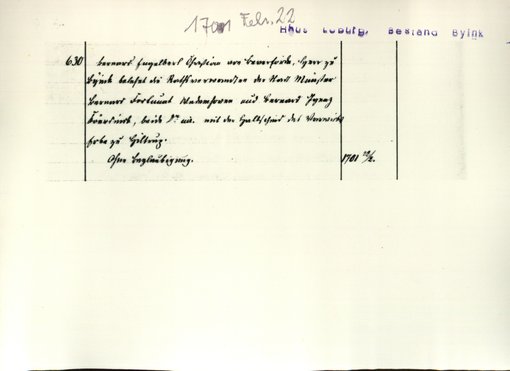 1701 Febr. 22
Haus Loburg, Bestand Byink
630 Bernard Engelbert Christian von Beverförde, Herr zu
Byink belehnt die Rathsverwandten der Stadt Münster
Bernard Fortunat Wedemhove und Bernard Ignaz
beide Dr. mit der Halbscheid des
Erbe zu Hiltrup.
Ohne Beglaubigung. 1701 22/2.